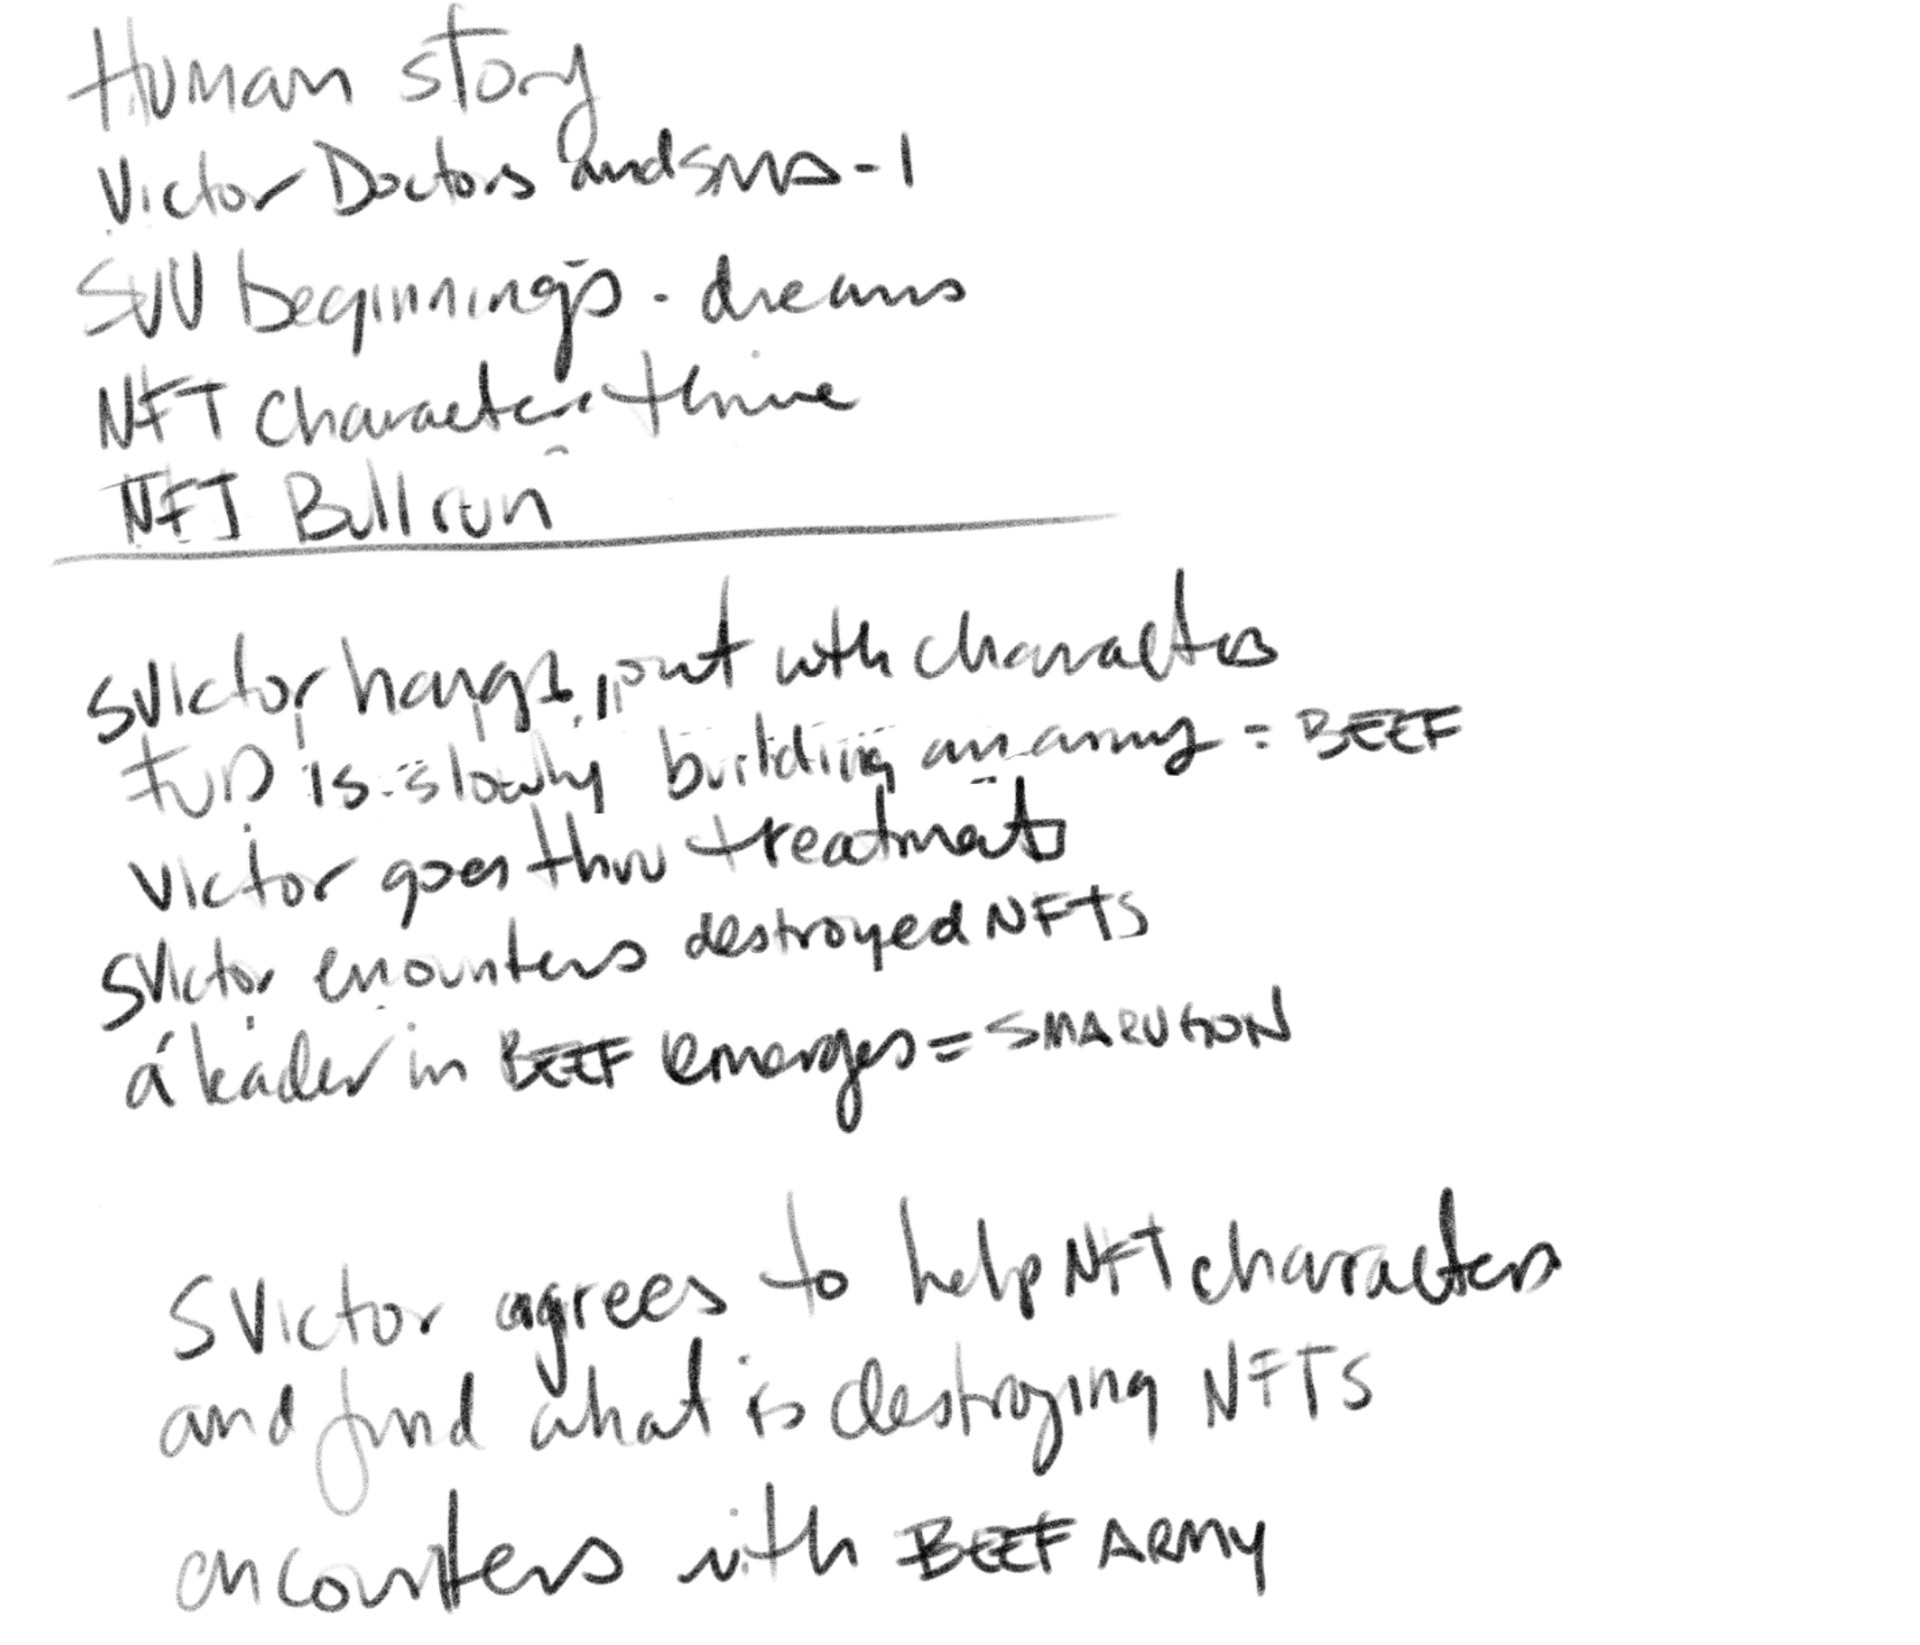 Human story
Victor Doctors and SMA-1
SVV beginnings - dreams
NFT Characters thrive
NFT Bull run
SVictor hangs out with characters
FUD is slowly building an army = BEEF
Victor goes thru treatments
SVictor enounters destroyed NFTS
a leader in BEEF emerges = SMARUGON
SVictor agrees to help NFT characters
and find what is destroying NFTS
encounters with BEEF ARMY